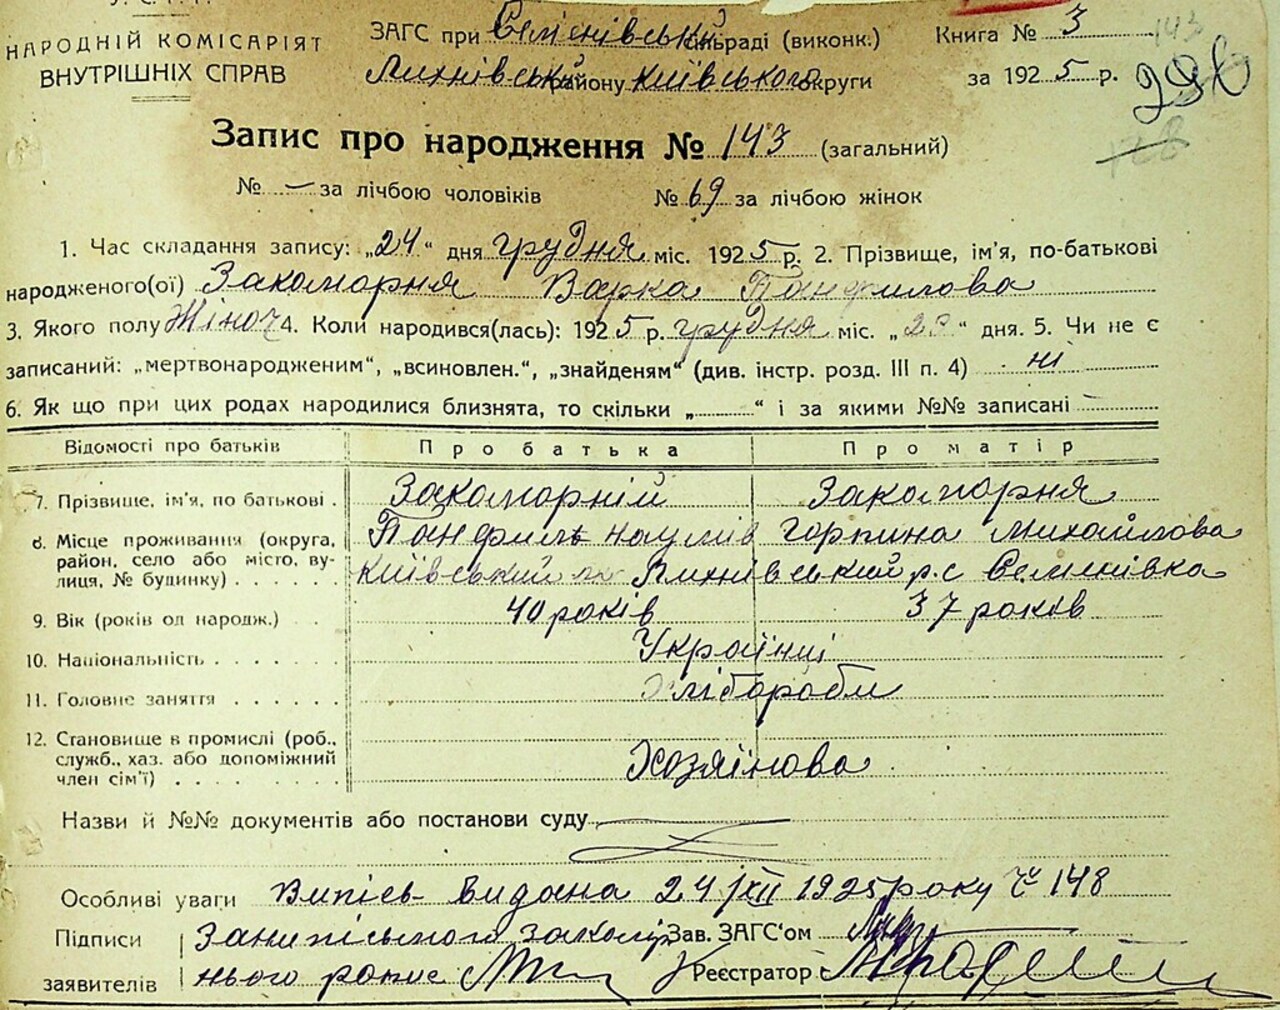 У.С.Р.Р.
НАРОДНІЙ КОМІСАРІЯТ
ВНУТРІШНІХ СПРАВ
ЗАГС при Семенівській сільраді (виконк.)
Книга № 3
143
Лихнівський району Київського округи
за 1925 р.
Запис про народження № 143 (загальний)
№ — за лічбою чоловіків № 69 за лічбою жінок
1. Час складання запису: „24“ дня грудня міс. 1925 р. 2. Прізвище, ім'я, по-батькові
народженого(ої) Закоморня Варка Панфилова
3. Якого полу Жіноч 4. Коли народився(лась): 1925 р. грудня міс. „ “ дня. 5. Чи не є
записаний: „мертвонародженим“, „всиновлен.“, „знайденям“ (див. інстр. розд. III п. 4) ні
6. Як що при цих родах народилися близнята, то скільки „ “ і за якими №№ записані
Відомості про батьків Про батька Про матір
7. Прізвище, ім'я, по батькові Закоморній Закоморня
Панфиль Наумів Горпина Михайлова
8. Місце проживання (округа,
район, село або місто, ву-
лиця, № будинку) Київський Лихнівський р. с Семенівка
9. Вік (років од народж.) 40 років 37 років
10. Національність Українці
11. Головне заняття Хлібароби
12. Становище в промислі (роб.,
служб., хаз. або допоміжний
член сім'ї) Хозяінова
Назви й №№ документів або постанови суду
Особливі уваги Випісь видана 24/XII 1925 року № 148
Підписи
заявителів
За неписьмого закомір
Зав. ЗАГС'ом
нього
Реєстратор